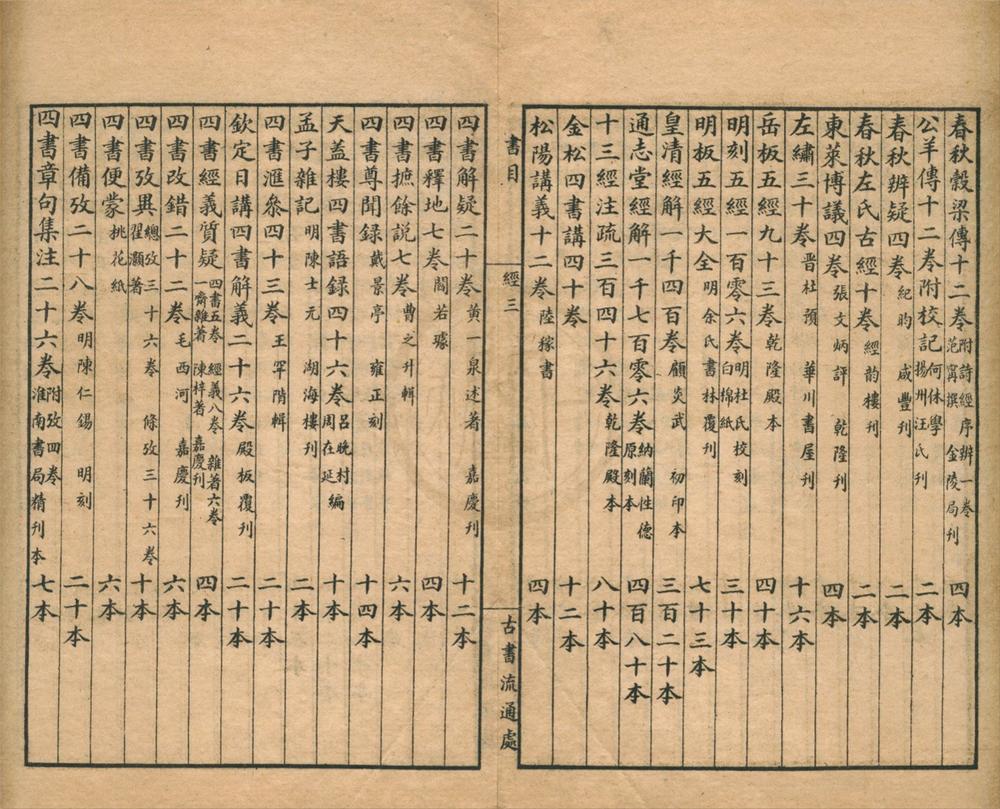 春秋穀梁傳十二卷附詩經序辨一卷 范甯撰 金陵局刊 四本
公羊傳十二卷附校記何休學 揚州汪氏刊 二本
春秋辨疑四卷 紀昀 咸豐刊 二本
春秋左氏古經十卷 經韵樓刊 二本
東萊博議四卷 張文炳評 乾隆刊 四本
左繡三十卷 晋杜預 華川書屋刊 十六本
岳板五經九十三卷 乾隆殿本 四十本
明刻五經一百零六卷 明杜氏校刻 白綿紙 三十本
明板五經大全 明余氏書林覆刊 七十三本
皇清經解一千四百卷 顧炎武 初印本 三百二十本
通志堂經解一千七百零六卷 納蘭性德 原刻本 四百八十本
十三經注疏三百四十六卷 乾隆殿本 八十本
金松四書講四十卷 十二本
松陽講義十二卷 陸稼書 四本
書目 經三 古書流通處
四書解疑二十卷 黃一泉述著 嘉慶刊 十二本
四書釋地七卷 閻若璩 四本
四書摭餘説七卷 曹之升輯 六本
四書尊聞録 戴景亭 雍正刻 十四本
天蓋樓四書語録四十六卷 呂晚村編 周在延 十本
孟子雜記 明陳士元 湖海樓刊 二本
四書滙叅四十三卷 王罕階輯 二十本
欽定日講四書解義二十六卷 殿板覆刊 二十本
四書經義質疑 四書五卷 經義八卷 雜著六卷 一齋雜著 陳梓著 嘉慶刊 四本
四書改錯二十二卷 毛西河 嘉慶刊 六本
四書攷異 總攷三十六卷 條攷三十六卷 翟灝著 十本
四書便蒙 桃花紙 六本
四書備攷二十八卷 明陳仁錫 明刻 二十本
四書章句集注二十六卷 附攷四卷 淮南書局精刊本 七本